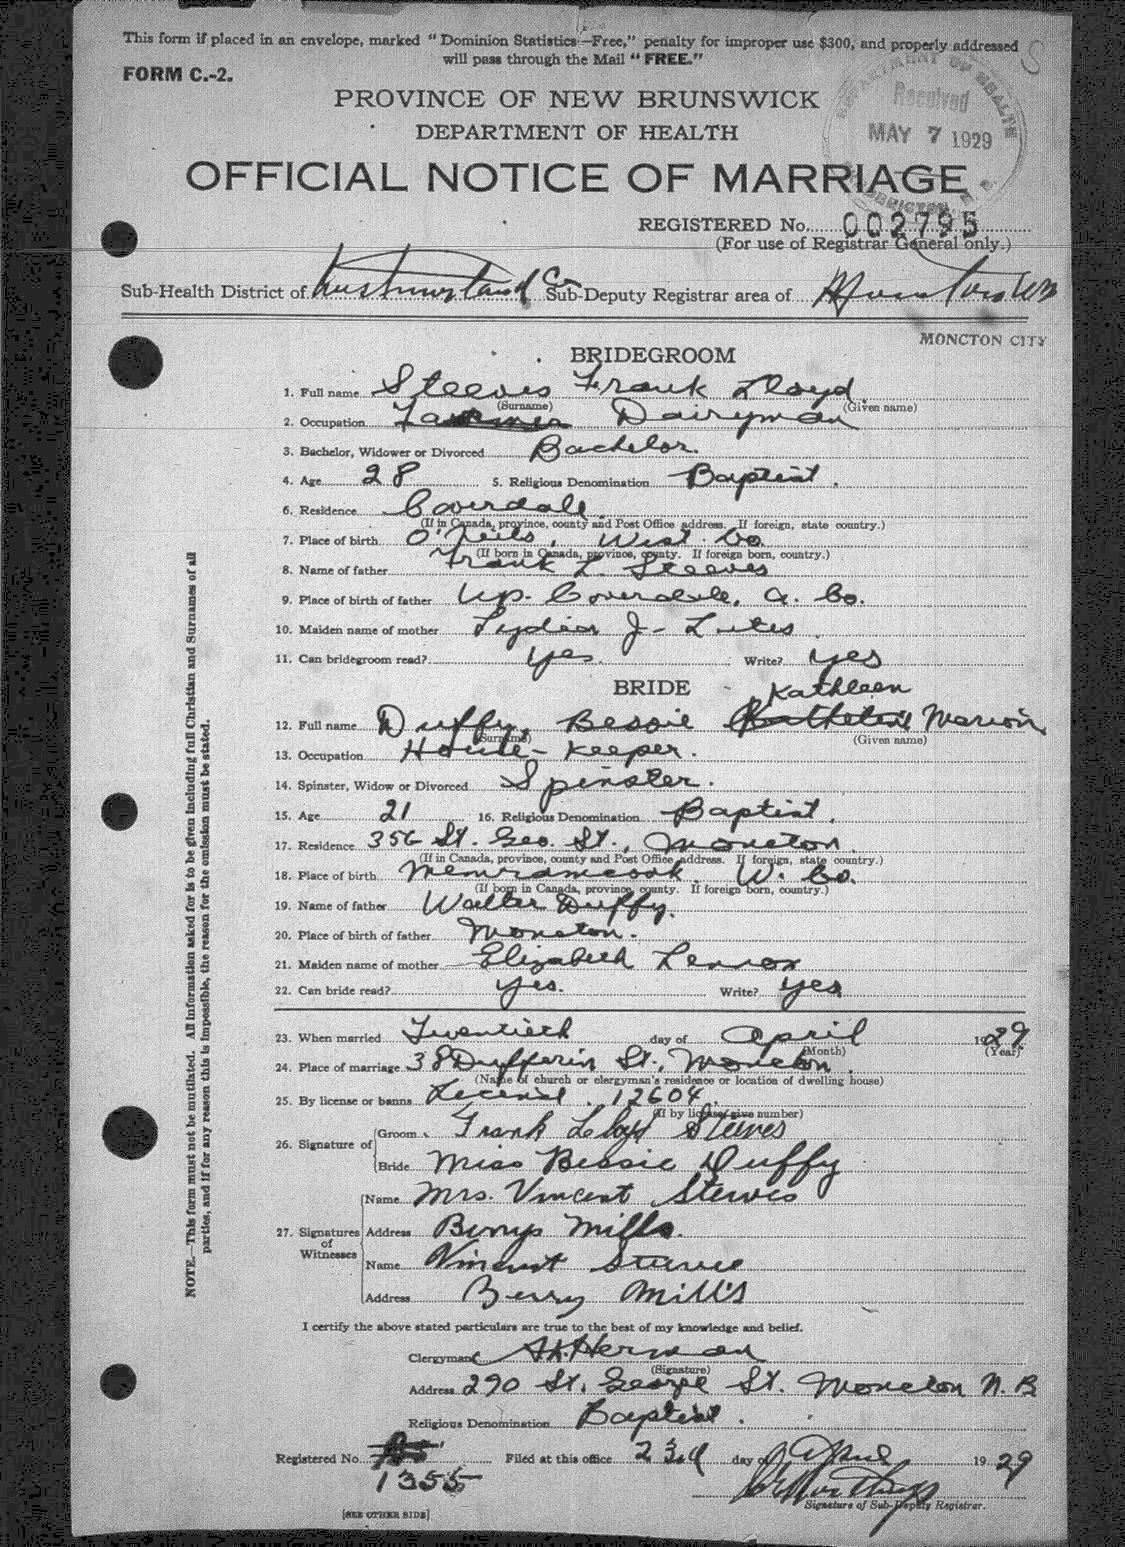 This form if placed in an envelope, marked "Dominion Statistics—Free," penalty for improper use $300, and properly addressed
will pass through the Mail "FREE."
FORM C.-2.
PROVINCE OF NEW BRUNSWICK
DEPARTMENT OF HEALTH
DEPARTMENT OF HEALTH
Received
MAY 7 1929
OFFICIAL NOTICE OF MARRIAGE
REGISTERED No. 002795
(For use of Registrar General only.)
Sub-Health District of Co Sub-Deputy Registrar area of Moncton
MONCTON CITY
BRIDEGROOM
1. Full name Steeves Frank Lloyd
(Surname) (Given name)
2. Occupation Farmer Dairyman
3. Bachelor, Widower or Divorced Bachelor.
4. Age 28 5. Religious Denomination Baptist.
6. Residence Coverdale
(If in Canada, province, county and Post Office address. If foreign, state country.)
7. Place of birth O'Neils, West. Co.
(If born in Canada, province, county. If foreign born, country.)
8. Name of father Frank L. Steeves
9. Place of birth of father Up. Coverdale, A. Co.
10. Maiden name of mother Lydia J- Lutes
11. Can bridegroom read? Yes. Write? yes
BRIDE
Kathleen
12. Full name Duffy, Bessie Marion
(Surname) (Given name)
13. Occupation House-Keeper.
14. Spinster, Widow or Divorced Spinster.
15. Age 21 16. Religious Denomination Baptist.
17. Residence 356 St. Geo. St., Moncton.
(If in Canada, province, county and Post Office address. If foreign, state country.)
18. Place of birth Memramcook, W. Co.
(If born in Canada, province, county. If foreign born, country.)
19. Name of father Walter Duffy.
20. Place of birth of father Moncton.
21. Maiden name of mother Elizabeth Lennox
22. Can bride read? yes. Write? yes
23. When married Twentieth day of April 1929
(Month) (Year)
24. Place of marriage 38 Dufferin St. Moncton.
(Name of church or clergyman's residence or location of dwelling house)
25. By license or banns License. 12604.
(If by license give number)
26. Signature of
Groom Frank Lloyd Steeves
Bride Miss Bessie Duffy
27. Signatures of Witnesses
Name Mrs. Vincent Steeves
Address Berrys Mills.
Name Vincent Steeves
Address Berry Mill's
I certify the above stated particulars are true to the best of my knowledge and belief.
Clergyman Herman
(Signature)
Address 290 St. George St. Moncton N.B
Religious Denomination Baptist.
Registered No. 1355 Filed at this office 23rd day of April 1929
Signature of Sub-Deputy Registrar.
[SEE OTHER SIDE]
NOTE.—This form must not be mutilated. All information asked for is to be given including full Christian and Surnames of all
parties, and if for any reason this is impossible, the reason for the omission must be stated.